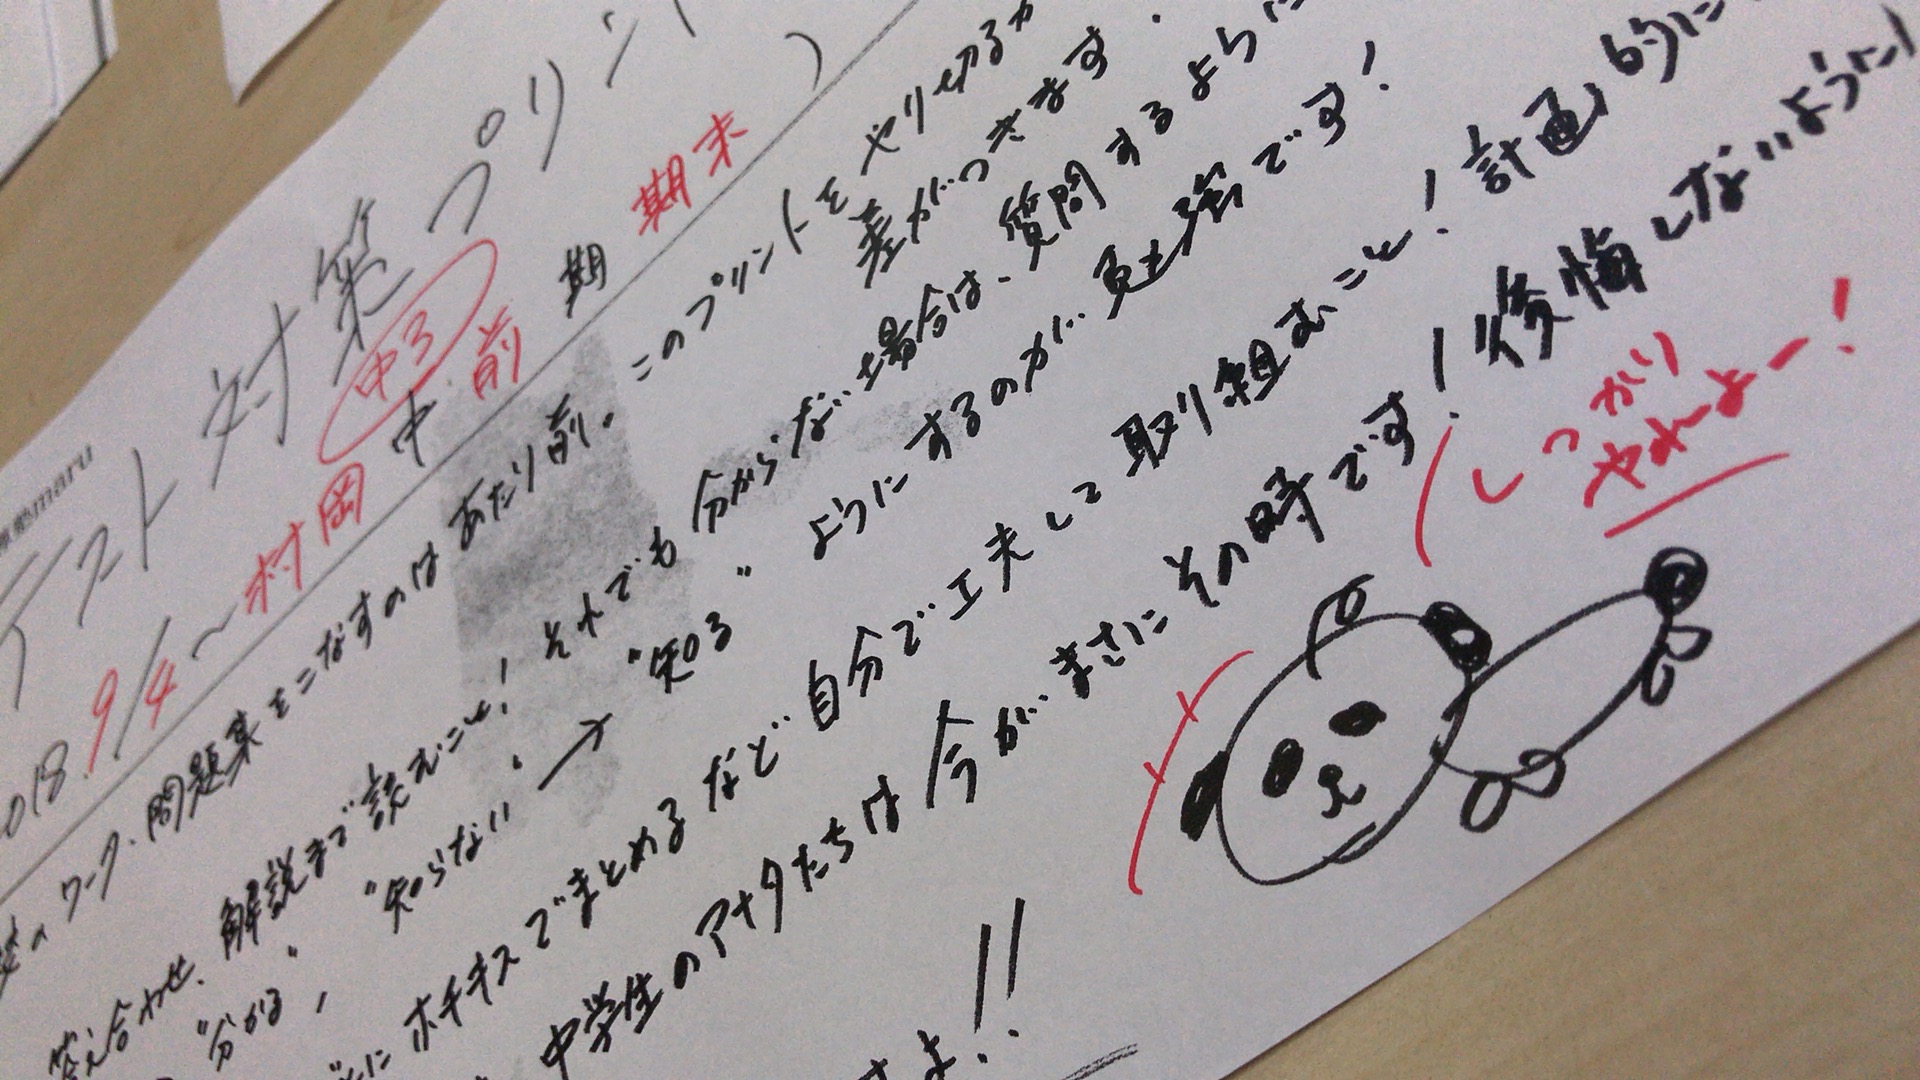 maru
テスト対策プリント
中3
2018. 9/4～ 村岡中 前期 期末 )
のワーク・問題集をこなすのはあたり前。このプリントをやり切るか
差がつきます.
答え合わせ、解説まで読むこと! それでも分からない場合は、質問するように
"分かる", "知らない" → "知る" ようにするのが勉強です!
とにホチキスでまとめるなど自分で工夫して取り組むこと! 計画的に
中学生のアナタたちは今がまさにその時です! 後悔しないように!
しっかり
やれーよー!
すよ!!